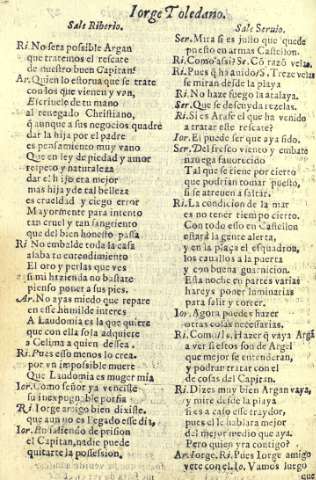 Iorge Toledano.
Sale Riberio.
Ri. No sera possible Argan
que tratemos el rescate
de nuestro buen Capitan?
Ar. Quien lo estorua que se trate
con los que vienen y van,
Escriuele de tu mano
al renegado Christiano,
que aunque a sus negocios quadre
dar la hija por el padre
es pensamiento muy vano
Que en ley de piedad y amor
respeto y naturaleza
dar el hijo era mejor
mas hija y de tal belleza
es crueldad y ciego error
Mayormente para intento
tan cruel y tan sangriento
que del bien honesto passa
Ri No embalde toda la casa
alaba tu entendimiento
El oro y perlas que ves
si mi hazienda no bastare
pienso poner a sus pies.
Ar. No ayas miedo que repare
en esse humilde interes
A Laudomia es la que quiere
que con ella sola adquiere
a Celima a quien dessea.
Ri. Pues esso menos lo crea.
por vn impossible muere
Que Laudomia es muger mia
Ior. Como señor ya vēciste
su inexpugnable porfia
Ri Iorge amigo bien dixiste.
que aun no es llegado esse dia,
Ior. Estādo en prision
el Capitan, nadie puede
quitarte la possession.
Sale Seruio.
Ser. Mira si es justo que quede
puesto en armas Castellon.
Ri. Como assi? Se. Cō razō velas.
Ri. Pues q̄ ha auido? S. Treze velas
se miran desde la playa
Ri. No haze fuego la atalaya.
Ser. Que se descuyda rezelas.
Ri. Si es Arafe el que ha venido
a tratar este rescate?
Ior. El puede ser que aya sido.
Ser. Del fresco viento y embate
nauega fauorecido
Tal que se tiene por cierto
que podrian tomar puesto,
si se atreuen a saltar.
Ri. La condicion de la mar
es no tener tiempo cierto.
Con todo esso en Castellon
estarà la gente alerta,
y en la plaça el esquadron,
los cauallos a la puerta
y con buena guarnicion.
Esta noche en partes varias
hareys poner luminarias
para salir y correr.
Ior. Agora puedes hazer
otras cosas necessarias.
Ri. Como? Ar. Hazer q̄ vaya Argā
a ver si estos son de Argel
que mejor se entenderan,
y podràr tratar con el
de cosas del Capitan.
Ri. Dizes muy bien Argan vaya,
y mire desde la playa
si es a caso esse traydor,
pues el le hablara mejor
del mejor medio que aya.
Pero quien yra contigo?
Ar. Iorge. Ri. Pues Iorge amigo
vete con el. Io. Vamos luego
que